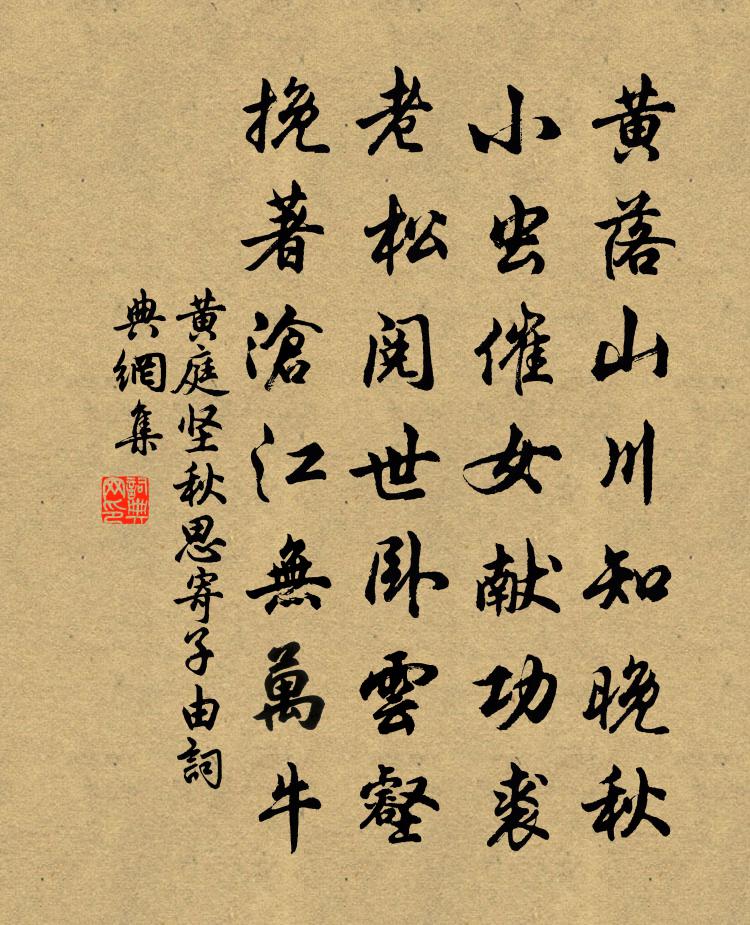 黄落山川知晚秋
小虫催女献功裘
老松阅世卧雲壑
挽著滄江無萬牛
黄庭坚秋思寄子由詞
典網集
詞典网印